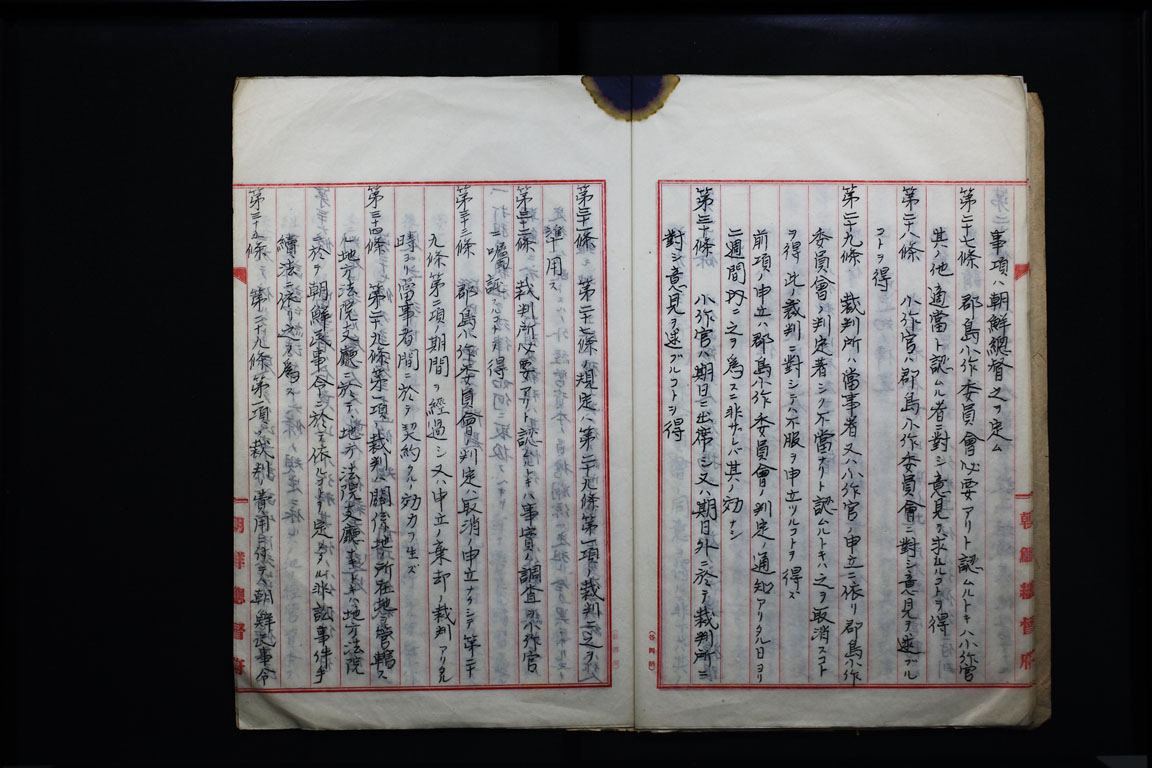 事項ハ朝鮮總督之ヲ定ム
第二十七條　郡島小作委員會必要アリト認ムルトキハ小作官
其ノ他適當ト認ムル者ニ對シ意見ヲ求ムルコトヲ得
第二十八條　小作官ハ郡島小作委員會ニ對シ意見ヲ述ブル
コトヲ得
第二十九條　裁判所ハ當事者又ハ小作官ノ申立ニ依リ郡島小作
委員會ノ判定著シク不當ナリト認ムルトキハ之ヲ取消スコト
ヲ得此ノ裁判ニ對シテハ不服ヲ申立ツルコトヲ得ズ
前項ノ申立ハ郡島小作委員會ノ判定ノ通知アリタル日ヨリ
二週間內ニ之ヲ爲スニ非サレバ其ノ效ナシ
第三十條　小作官ハ期日ニ出席シ又ハ期日外ニ於テ裁判所ニ
對シ意見ヲ述ブルコトヲ得
朝鮮總督府
第三十一條　第二十七條ノ規定ハ第二十九條第一項ノ裁判ニ之ヲ
準用ス
第三十二條　裁判所必要アリト認ムルトキハ事實ノ調査ヲ小作官
ニ囑託スルコトヲ得
第三十三條　郡島小作委員會ノ判定ハ取消ノ申立ナクシテ第二十
九條第二項ノ期間ヲ經過シ又ハ申立ノ棄却ノ裁判アリタル
時ヨリ當事者間ニ於テ契約タル效力ヲ生ズ
第三十四條　第二十九條第一項ノ裁判ハ關係地ノ所在地ヲ管轄ス
ル地方法院支廳ニ於テ、地方法院支廳ナキトキハ地方法院
ニ於テ朝鮮民事令ニ於テ依ルコトヲ定メタル非訟事件手
續法ニ依リ之ヲ爲ス
第三十五條　第二十九條第一項ノ裁判ノ費用ニ付テハ朝鮮民事令
朝鮮總督府